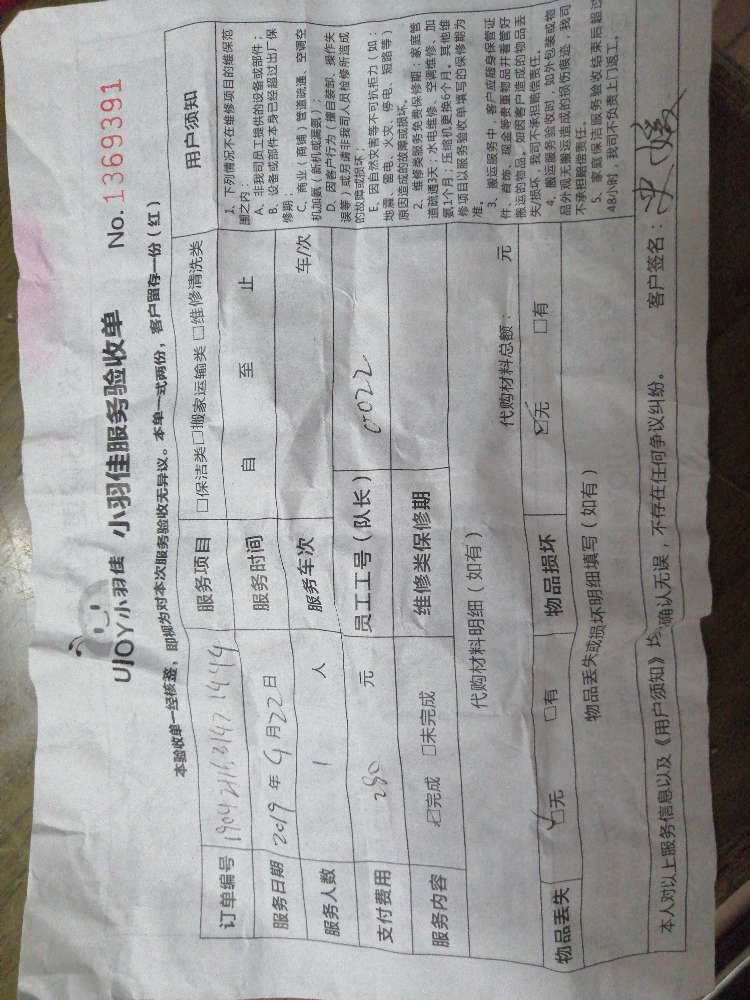 UJOY小羽佳 小羽佳服务验收单 No. 1369391
本验收单一经核签，即视为对本次服务验收无异议。本单一式两份，客户留存一份（红）
订单编号
服务项目 □保洁类□搬家运输类 □维修清洗类
服务日期 2019 年 4月22日
服务时间 自 至 止
服务人数 1 人
服务车次 车/次
支付费用 280 元
员工工号（队长） 0022
服务内容 ☑完成 □未完成
维修类保修期
代购材料明细（如有） 代购材料总额： 元
物品丢失 ☑无 □有 物品损坏 ☑无 □有
物品丢失或损坏明细填写（如有）
用户须知
1、下列情况不在维修项目的维保范
围之内：
A、非我司员工提供的设备或部件；
B、设备或部件本身已经超过出厂保
修期；
C、商业（商铺）管道疏通、空调空
机加氨（新机或漏氨）；
D、因客户行为（擅自装卸、操作失
误等）或另请非我司人员检修所造成
的故障或损坏；
E、因自然灾害等不可抗拒力（如：
地震、雷电、火灾、停电、短路等）
原因造成的故障或损坏。
2、维修类服务免费保修期：家庭管
道疏通3天；水电维修、空调维修、加
氨1个月；压缩机更换6个月。其他维
修项目以服务验收单填写的保修期为
准。
3、搬运服务中，客户应随身保管证
件、首饰、现金等贵重物品并看管好
搬运的物品，如因客户造成的物品丢
失/损坏，我司不承担赔偿责任。
4、搬运服务验收时，如外包装或物
品外观无搬运造成的损伤痕迹，我司
不承担赔偿责任。
5、家庭保洁服务验收结束后超过
48小时，我司不负责上门返工。
本人对以上服务信息以及《用户须知》均确认无误，不存在任何争议纠纷。 客户签名：史